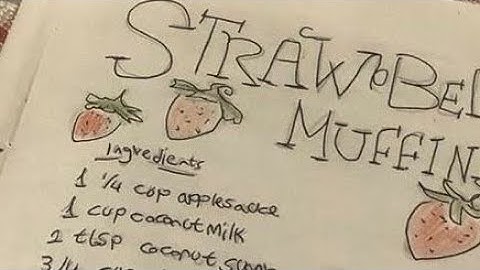 STRAWBE
MUFFIN
Ingredients
1 1/4 cup applesauce
1 cup coconut milk
coconut
3/4